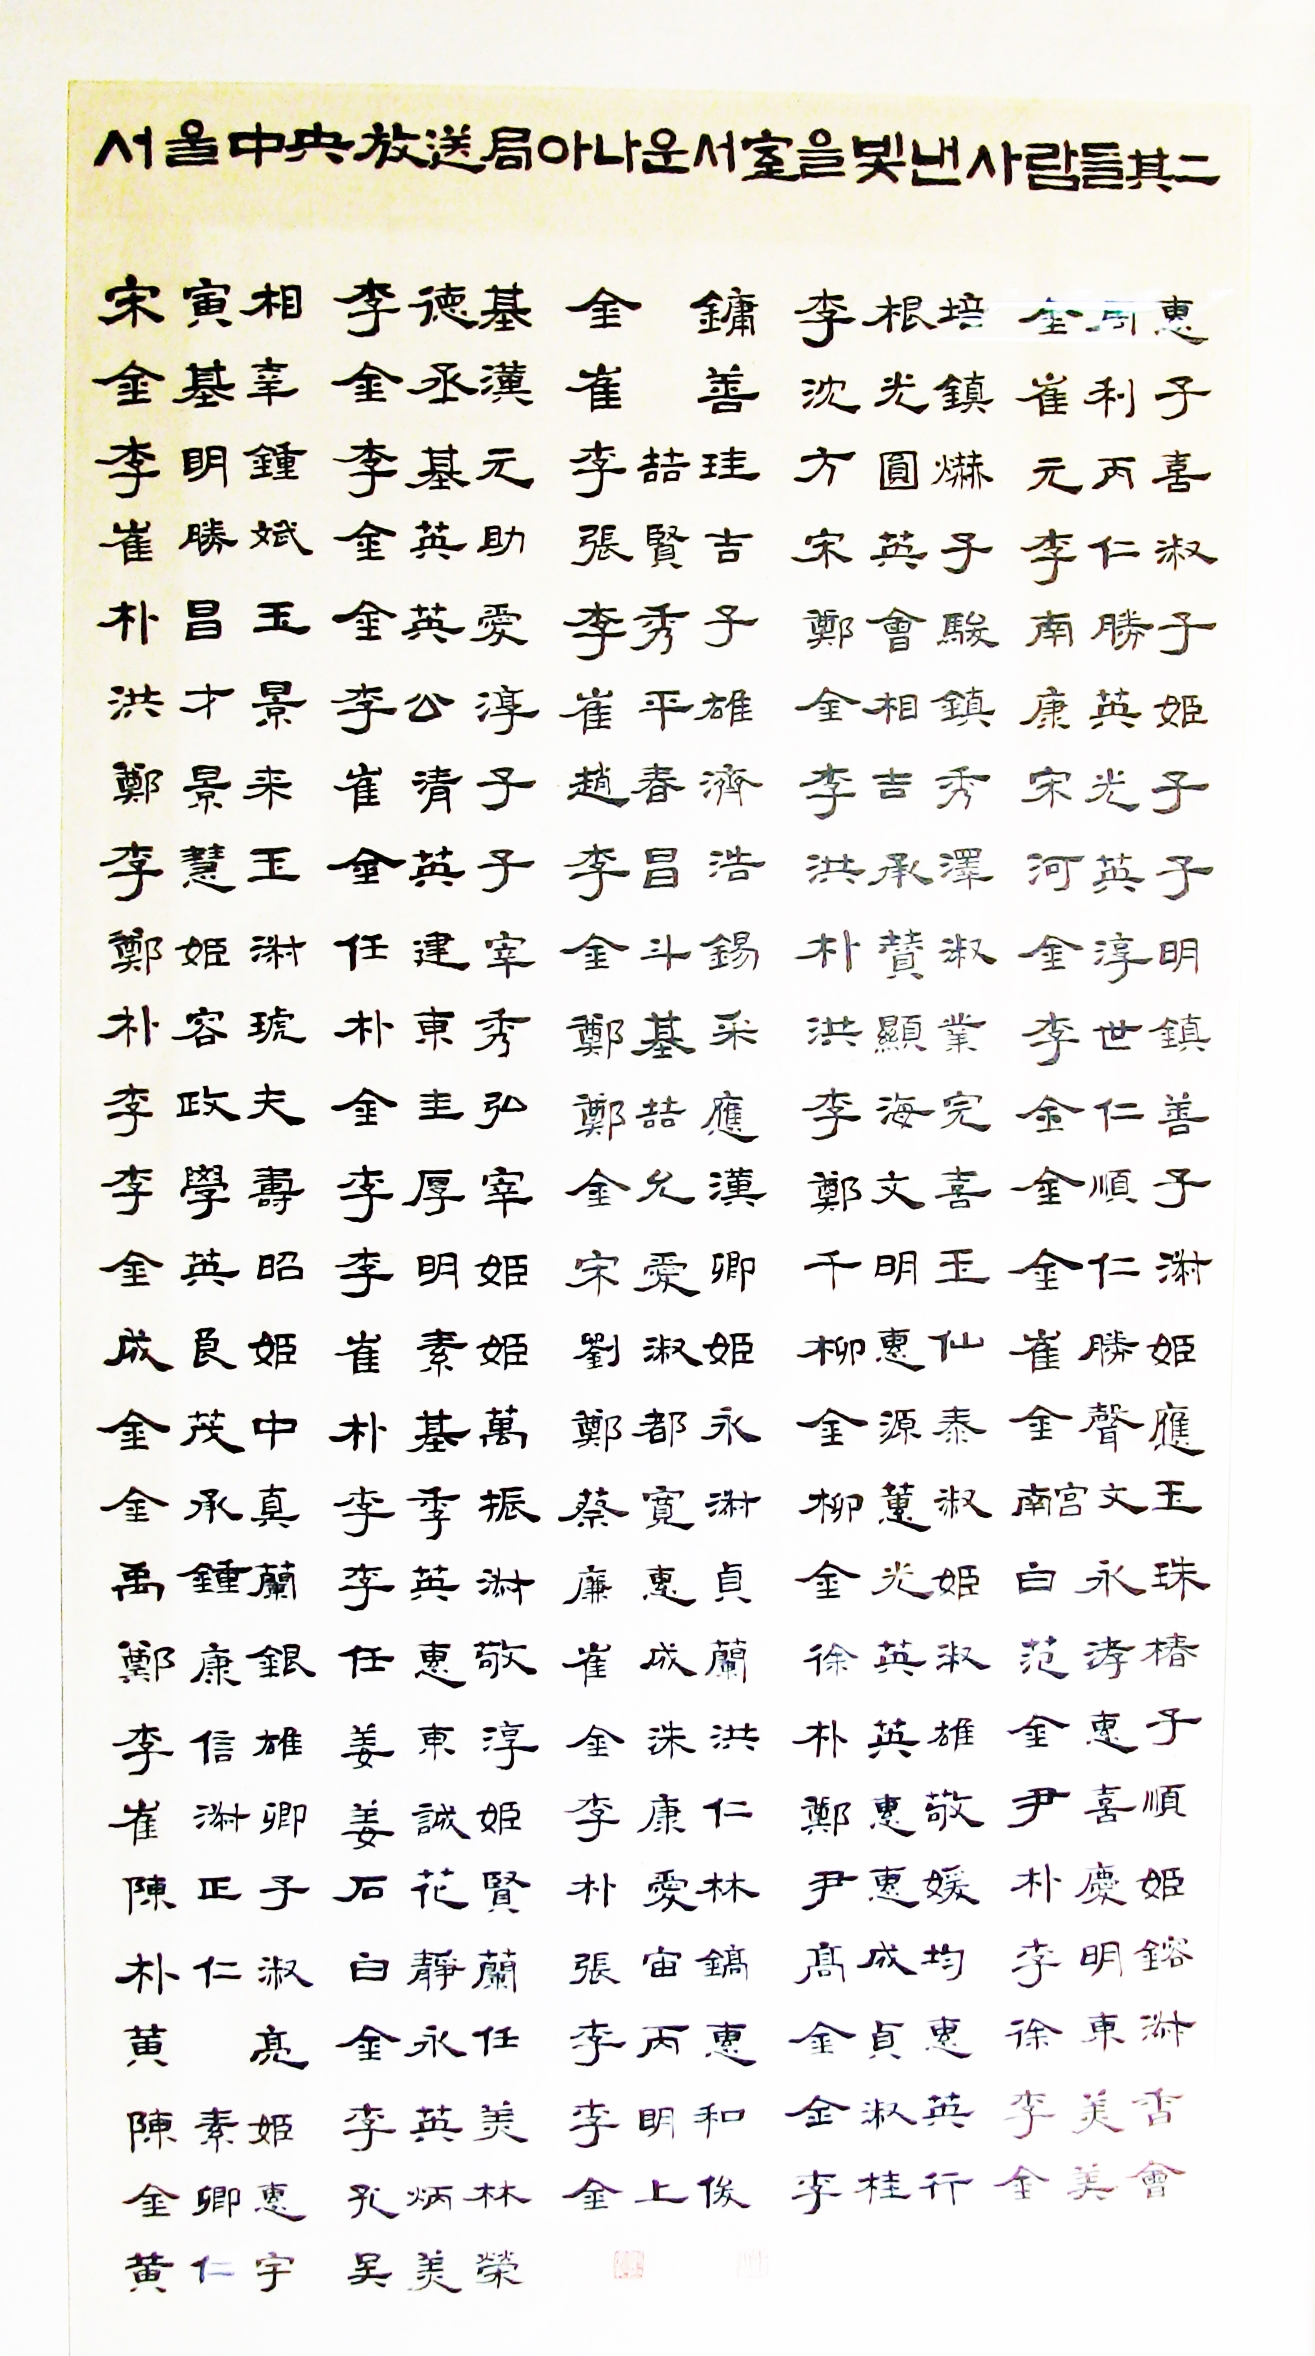 서울中央放送局아나운서室을빛낸사람들其二
宋寅相 李德基 金 鏞 李根培 金周惠
金基辛 金丞漢 崔 善 沈光鎮 崔利子
李明鍾 李基元 李喆珪 方圓爀 元丙喜
崔勝斌 金英助 張賢吉 宋英子 李仁淑
朴昌玉 金英愛 李秀子 鄭會駿 南勝子
洪才景 李公淳 崔平雄 金相鎮 康英姬
鄭景来 崔清子 趙春濟 李吉秀 宋光子
李慧玉 金英子 李昌浩 洪承澤 河英子
鄭姬淑 任建宰 金斗錫 朴贊淑 金淳明
朴容琥 朴東秀 鄭基采 洪顯業 李世鎮
李政夫 金圭弘 鄭喆應 李海完 金仁善
李學壽 李厚宰 金允漢 鄭文喜 金順子
金英昭 李明姬 宋愛卿 千明玉 金仁淑
成良姬 崔素姬 劉淑姬 柳惠仙 崔勝姬
金茂中 朴基萬 鄭都永 金源泰 金聲應
金承真 李季振 蔡寬淑 柳蕙淑 南宮文玉
禹鍾蘭 李英淑 廉惠貞 金光姬 白永珠
鄭康銀 任惠敬 崔成蘭 徐英淑 范涍椿
李信雄 姜東淳 金洙洪 朴英雄 金惠子
崔淑卿 姜誠姬 李康仁 鄭惠敬 尹喜順
陳正子 石花賢 朴愛林 尹惠媛 朴慶姬
朴仁淑 白靜蘭 張宙鎬 高成均 李明鎔
黄 亮 金永任 李丙惠 金貞惠 徐東淑
陳素姬 李英美 李明和 金淑英 李美杏
金卿惠 孔炳林 金上俊 李桂行 金美會
黃仁宇 吴美榮